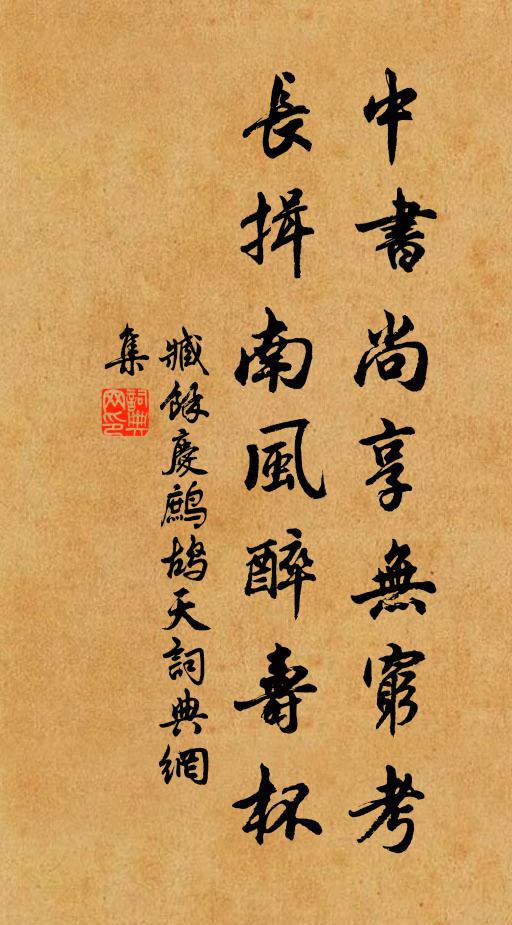 中書尚享無窮考
長揖南風醉壽杯
臧餘慶鷓鴣天詞典網
集
詞典
网印